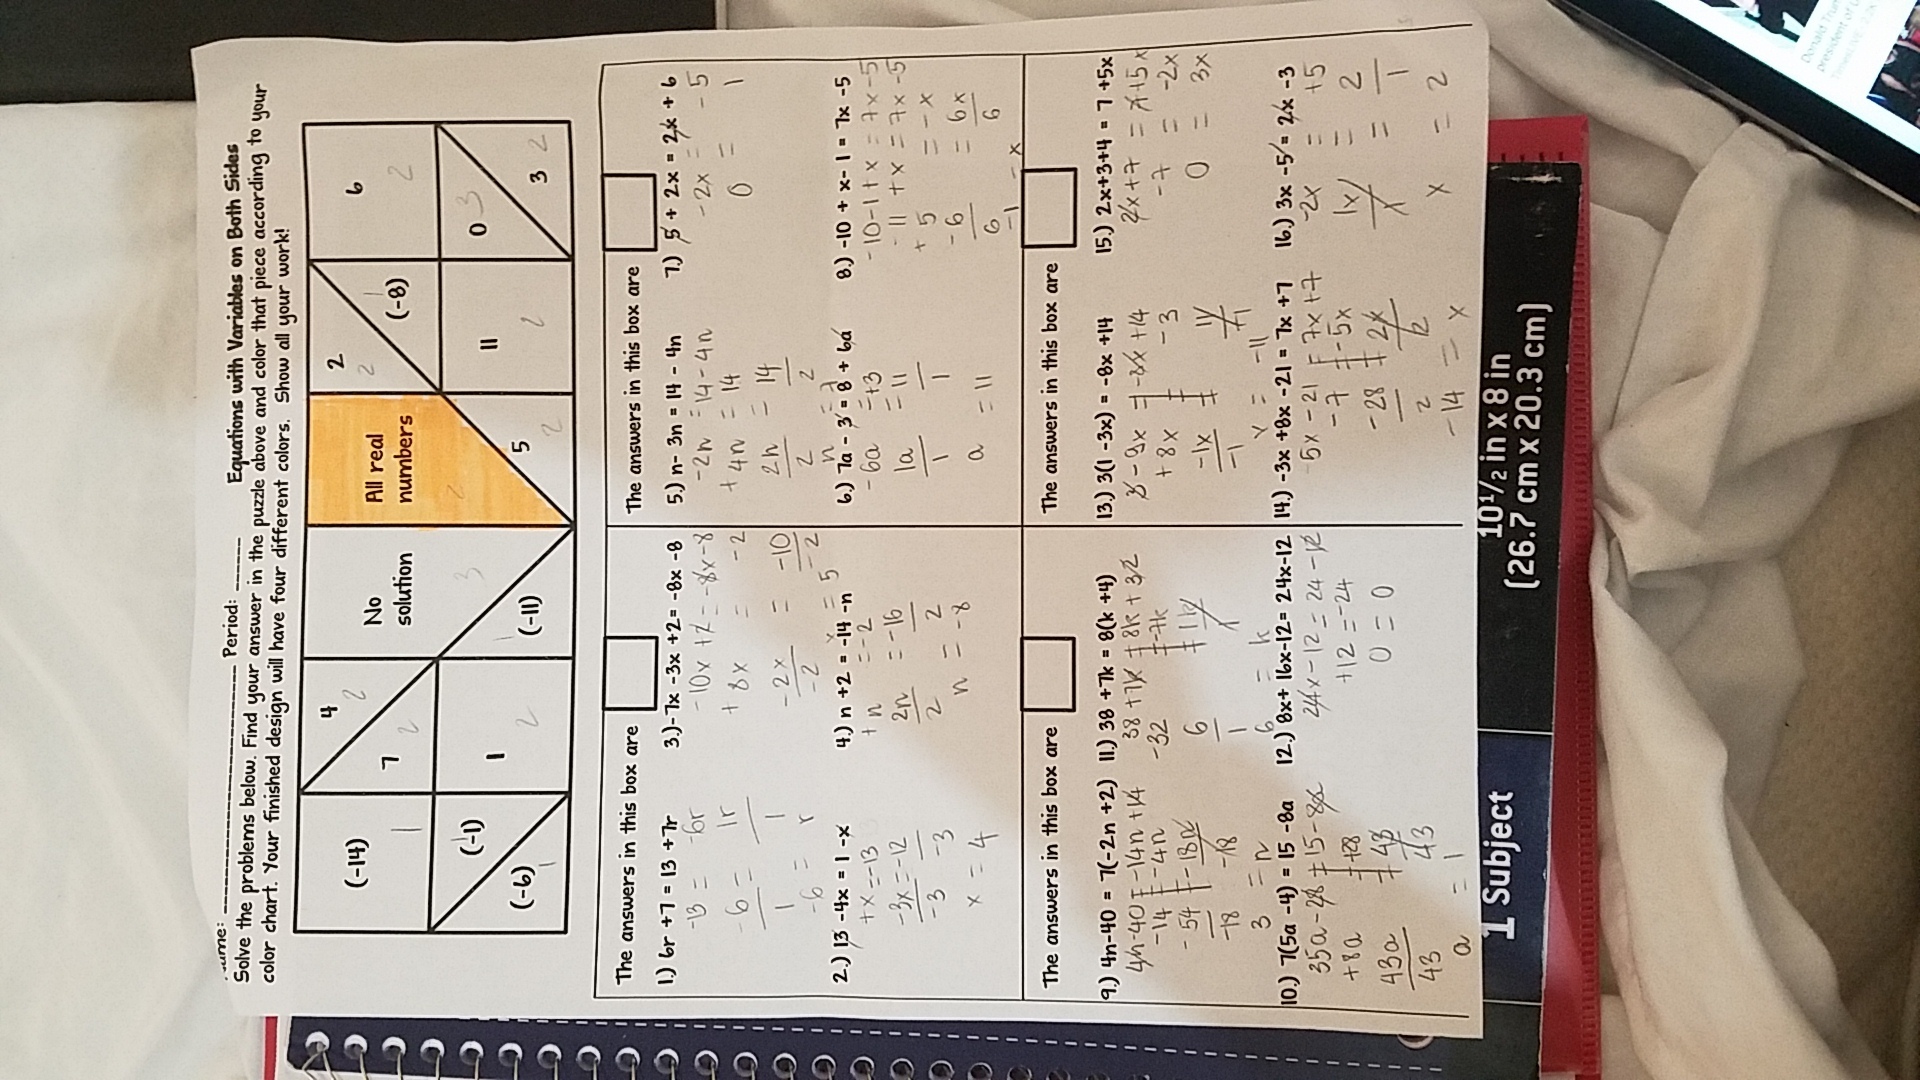 Name: ____________ Period: ____ Equations with Variables on Both Sides
Solve the problems below. Find your answer in the puzzle above and color that piece according to your
color chart. Your finished design will have four different colors. Show all your work!
(-14) 1
4 2
7 2
No
solution
All real
numbers
2
2 2
(-8) 1
6 2
(-1)
(-6) 1
1 2
3
(-11) 1
5 2
11 2
0 3
3 2
The answers in this box are
1.) 6r +7 = 13 +7r
-13 = -6r
-6 = 1r
1 1
-6 = r
2.) 13 -4x = 1 -x
+x = -13
-3x = -12
-3 -3
x = 4
3.) -7x -3x +2 = -8x -8
-10x +2 = -8x -8
+ 8x = -2
-2x = -10
-2 -2
x = 5
4.) n +2 = -14 -n
+ n = -2
2n = -16
2 2
n = -8
The answers in this box are
5.) n- 3n = 14 - 4n
-2n = 14 - 4n
+ 4n = 14
2n = 14
2 2
n = 7
6.) 7a - 3 = 8 + 6a
-6a = +3
1a = 11
1 1
a = 11
7.) 5 + 2x = 2x + 6
-2x = -5
0 = 1
8.) -10 + x- 1 = 7x -5
-10-1+x = 7x-5
-11 +x = 7x-5
+5 = -x
-6 = 6x
6 6
-1 = x
The answers in this box are
9.) 4n-40 = 7(-2n +2)
4n-40 = -14n +14
-14 = -4n
-54 = -18n
-18 -18
3 = n
10.) 7(5a -4) = 15 -8a
35a -28 = 15 - 8a
+8a = +28
43a = 43
43 43
a = 1
11.) 38 +7k = 8(k +4)
38 +7k = 8k + 32
-32 = -7k
6 = 1k
1 1
6 = k
12.) 8x+ 16x-12= 24x-12
24x-12 = 24 -12
+12 = -24
0 = 0
The answers in this box are
13.) 3(1 -3x) = -8x +14
3 -9x = -8x +14
+ 8x = -3
-1x = 11
-1 -1
x = -11
14.) -3x +8x -21 = 7x +7
5x - 21 = 7x +7
-7 = -5x
-28 = 2x
2 2
-14 = x
15.) 2x+3+4 = 7 +5x
2x+7 = 7+5x
-7 = -2x
0 = 3x
16.) 3x -5 = 2x -3
-2x = +5
1x = 2
1 = 1
x = 2
1 Subject
10 1/2 in x 8 in
(26.7 cm x 20.3 cm)
Donald Trum
president of